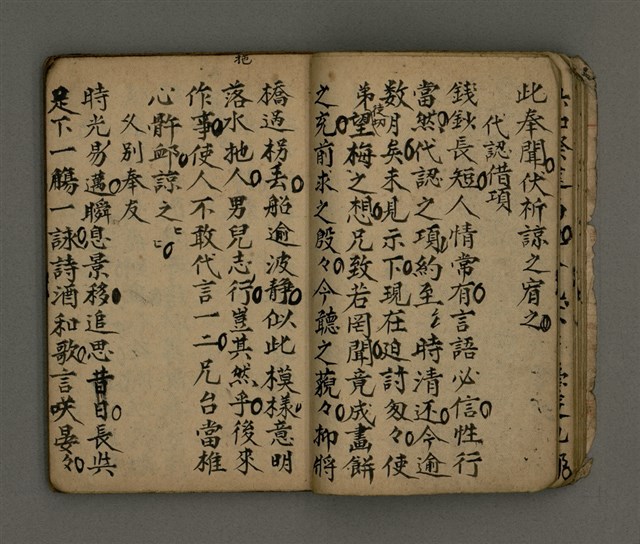 此奉聞伏祈諒之宥之
代認借項
錢鈔長短人情常有言語必信性行
當然代認之項約至
時清还今逾
数月矣未見示下現在迫討匆々使
弟望梅之想兄致若罔聞竟成畫餅
之充前求之殷々今聽之藐々抑將
橋過拐丟船逾波靜似此模樣意明
拖
落水扡人男兒志行豈其然乎後來
作事使人不敢代言一二兄台當推
心骬卹諒之
久別奉友
時光易邁瞬息景移追思昔日長共
足下一觴一詠詩酒和歌言咲晏々